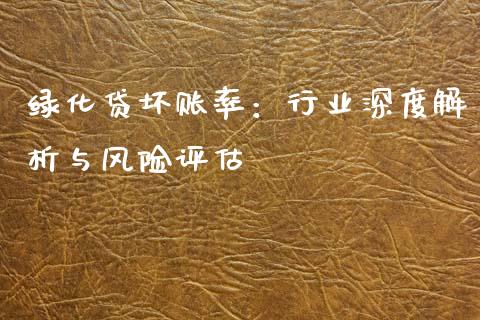 绿化贷坏账率：行业深度解
析与风险评估